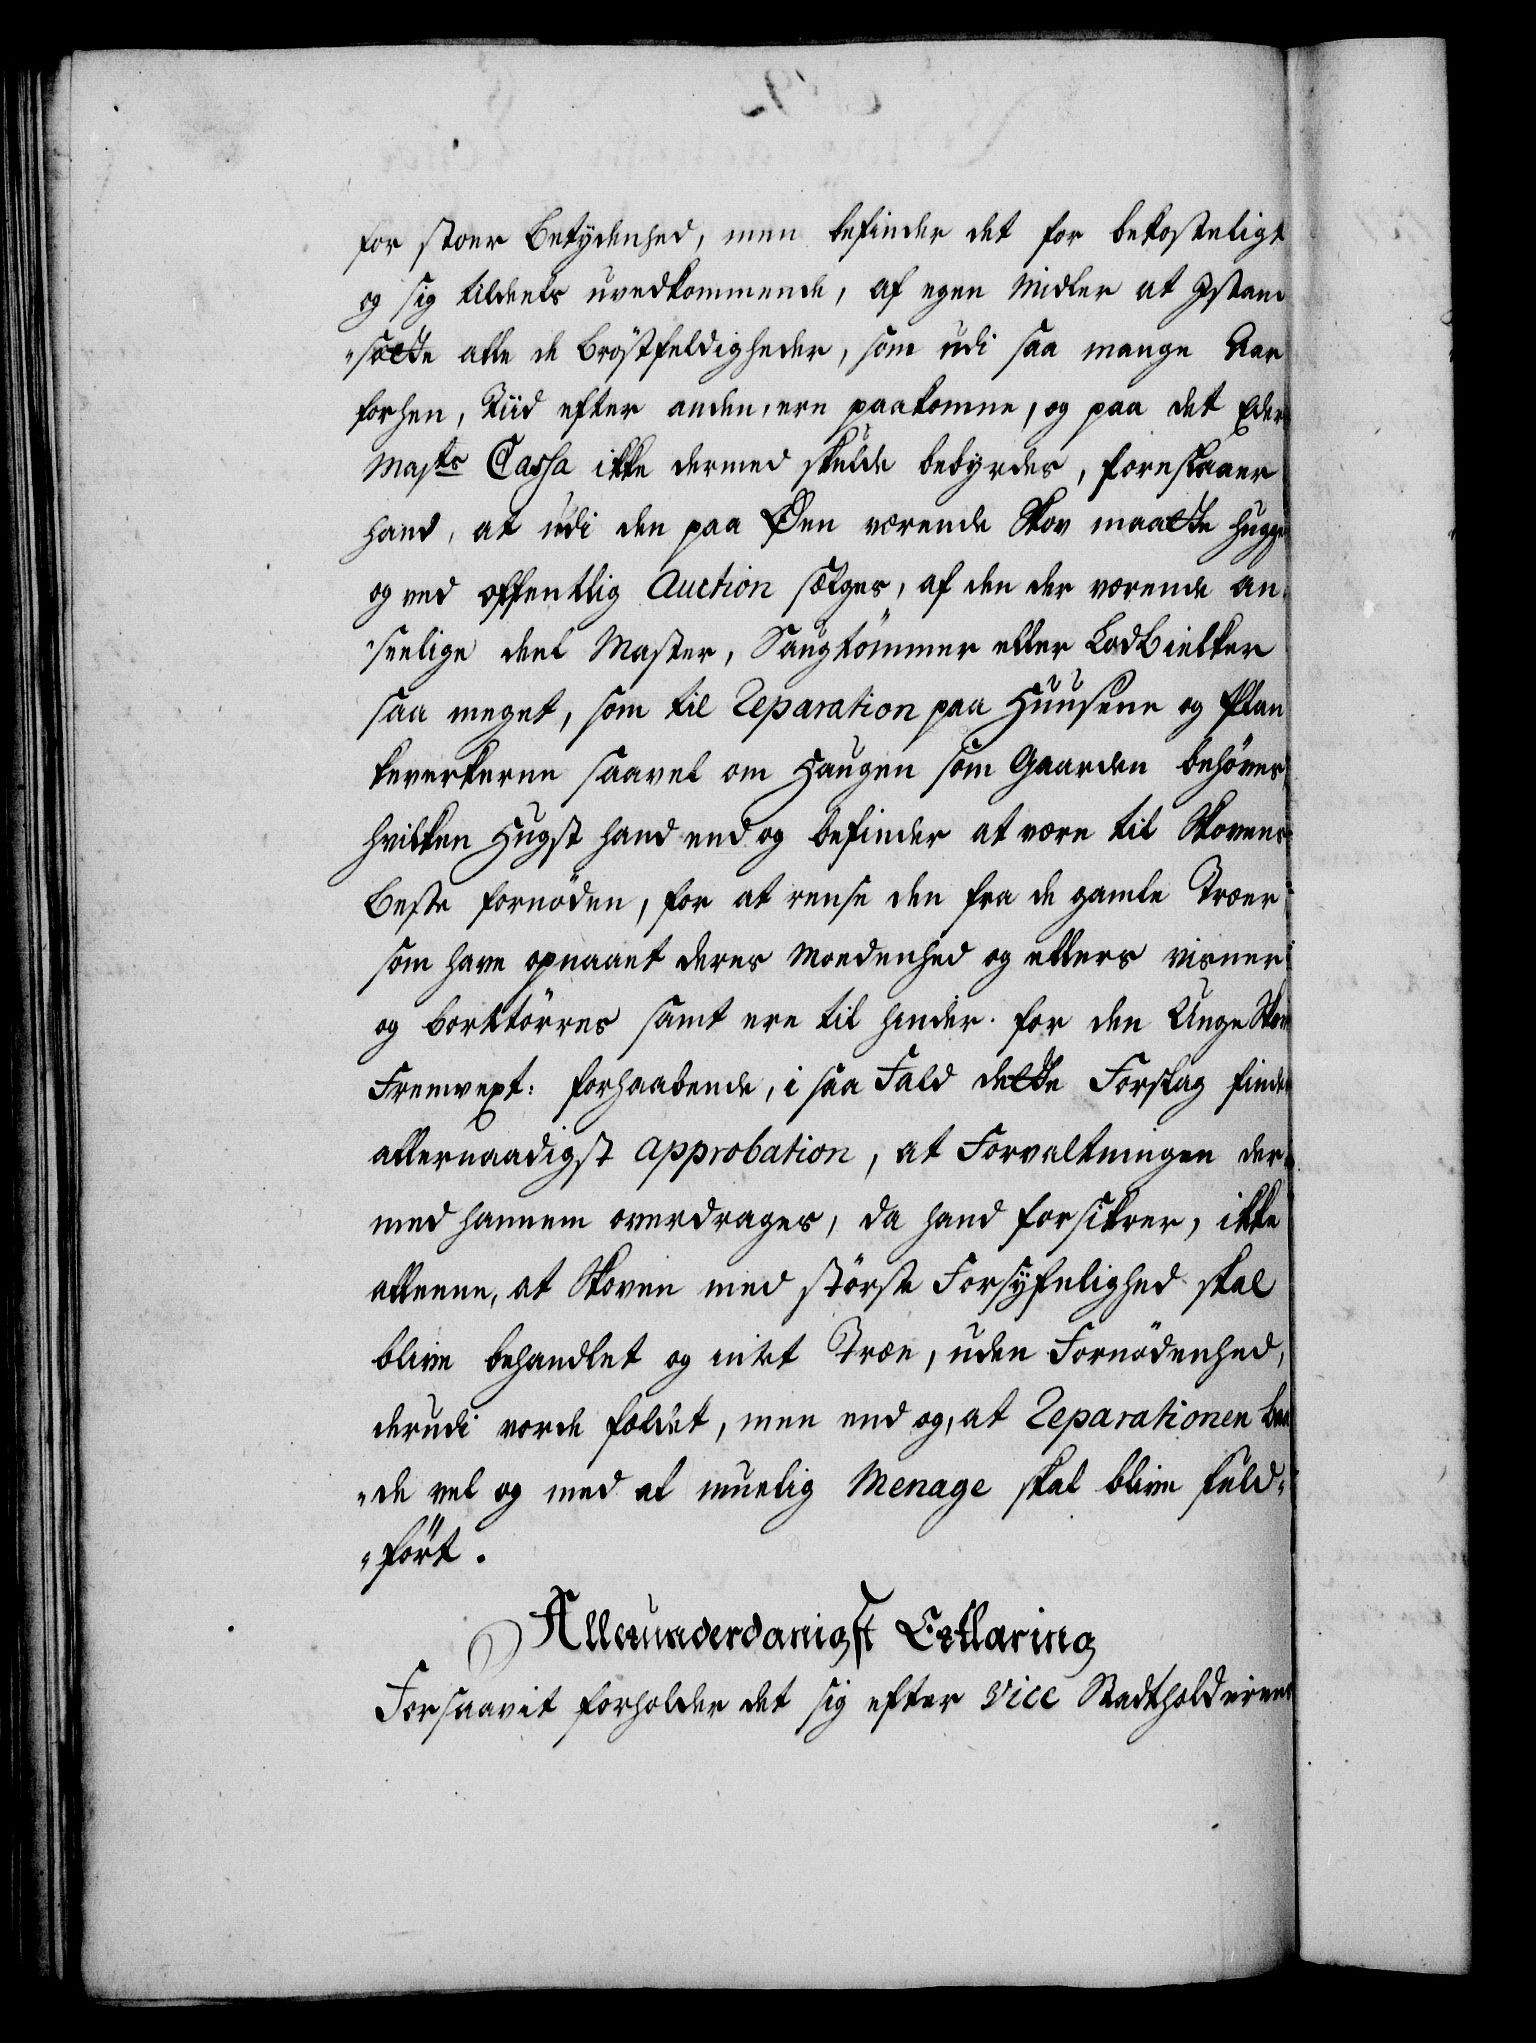 for stoer Betydenhed, men befinder det for bekosteligt
og sig tildeels uvedkommende, af egen Midler at Istand
"sætte alle de Bröstfeldigheder, som udi saa mange Aar
forhen, Tiid efter anden, ere paakomne, og paa det Eders
Maj:ts Cassa ikke dermed skulde bebyrdes, foreslaaer
hand, at udi den paa Øen værende Skov maatte hugges
og ved offentlig Auction sælges, af den der værende an-
"seelige deel Master, Saugtömmer eller LadBielker
saa meget, som til Reparation paa Huusene og Plan
keverkerne saavel om Haugen som Gaarden behöves,
hvilken Hugst hand end og befinder at være til Skovens
Beste fornöden, for at rense den fra de gamle Træer
som have opnaaet deres Moedenhed og ellers visner
og borttörres samt ere til hinder for den Unge Skov
Fremvext: forhaabende, i saa Fald dette Forslag finder
allernaadigst approbation, at Forvaltningen der-
med hannem overdrages, da hand forsikrer, ikke
alleene, at Skoven med störste Forsynlighed skal
blive behandlet og intet Træe, uden Fornödenhed,
derudi vorde fældet, men end og, at Reparationen baa
"de vel og med al muelig Menage skal blive fuld-
"fört.
Allerunderdanigst Erklæring
Forsaavit forholder det sig efter Vice Stadtholderens